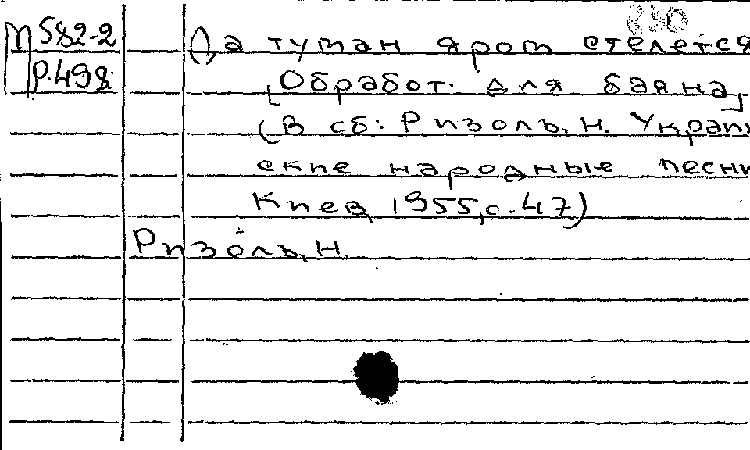 П 582-2
Р.498
850
Да туман яром стелется
[Обработ. для баяна]
(В сб: Ризоль, Н. Украин
ские народные песни
Киев, 1955, с. 47)
Ризоль, Н.